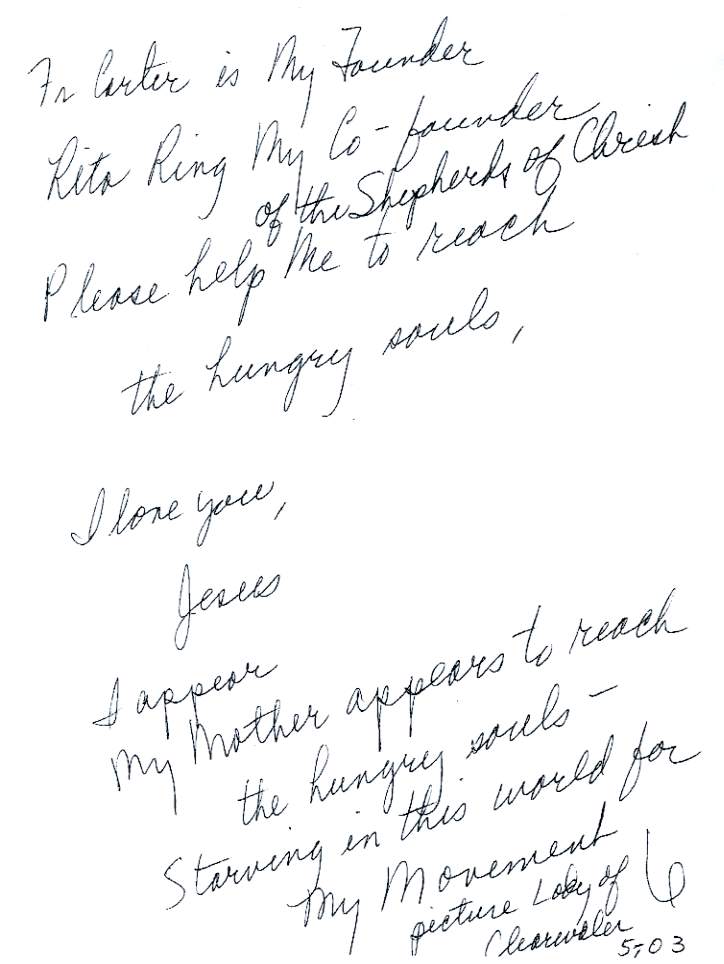 Fr Carter is My Founder
Rita Ring My Co-founder
of the Shepherds of Christ
Please help Me to reach
the hungry souls,
I love you,
Jesus
I appear
My Mother appears to reach
the hungry souls –
Starving in this world for
My Movement
picture Lady of
Clearwater
6
5-03